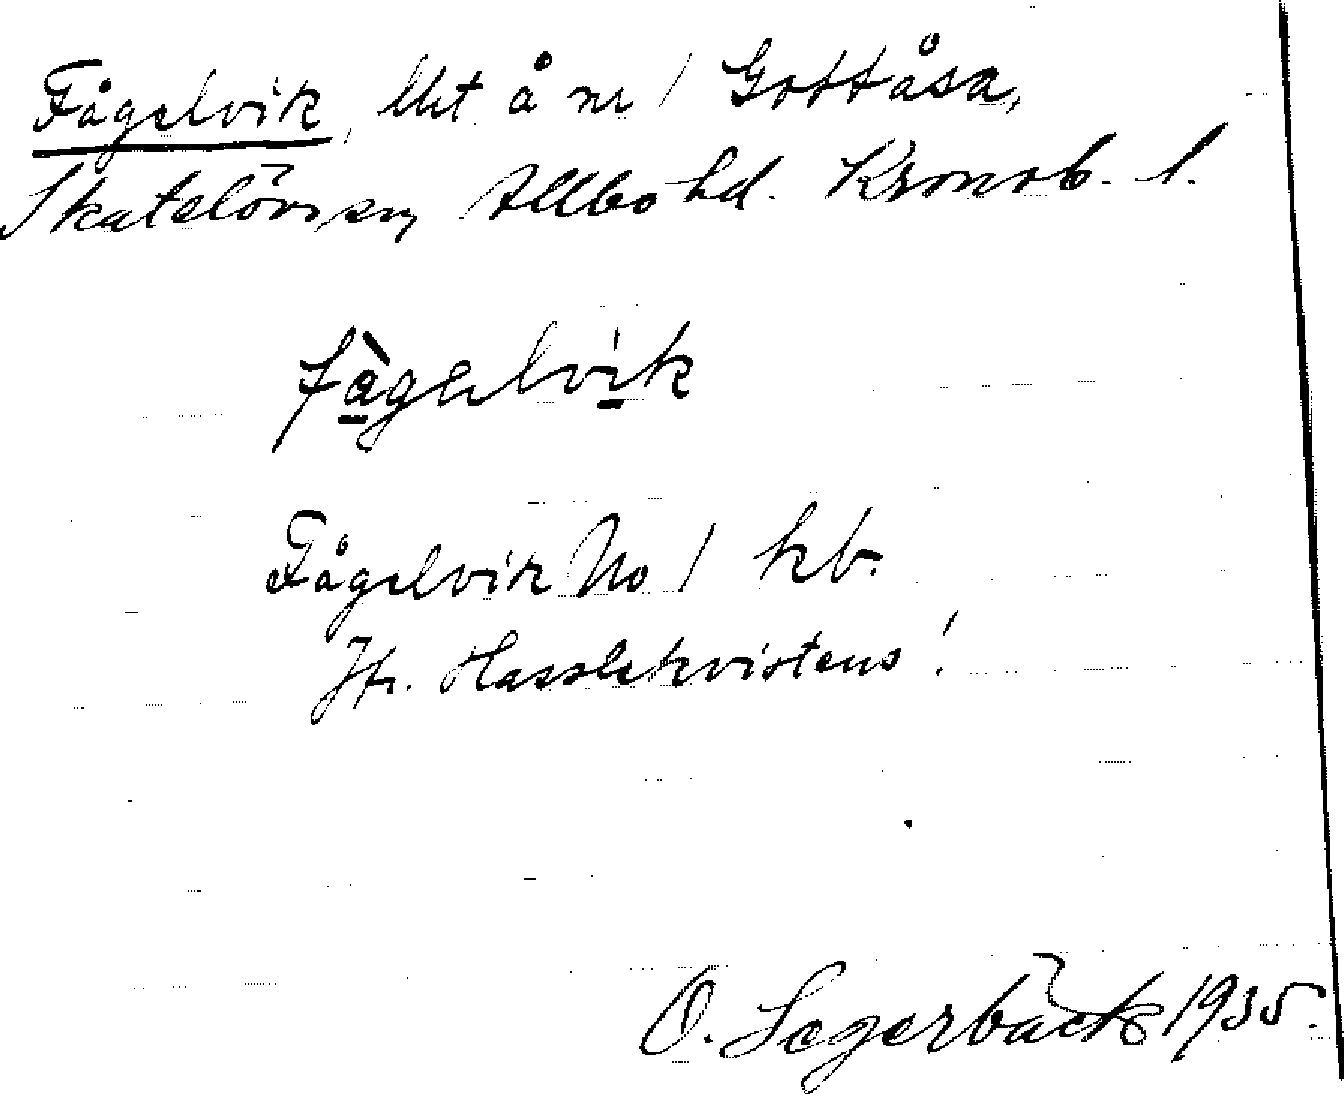 Fågelvik, lht å nr 1 Gottåsa,
Skatelövs sn, Allbo hd. Kronob. l.
fàgəlvik
Fågelvik No 1 kb.
Jfr. Hasslekvistens!
O. Segerbäck 1935.